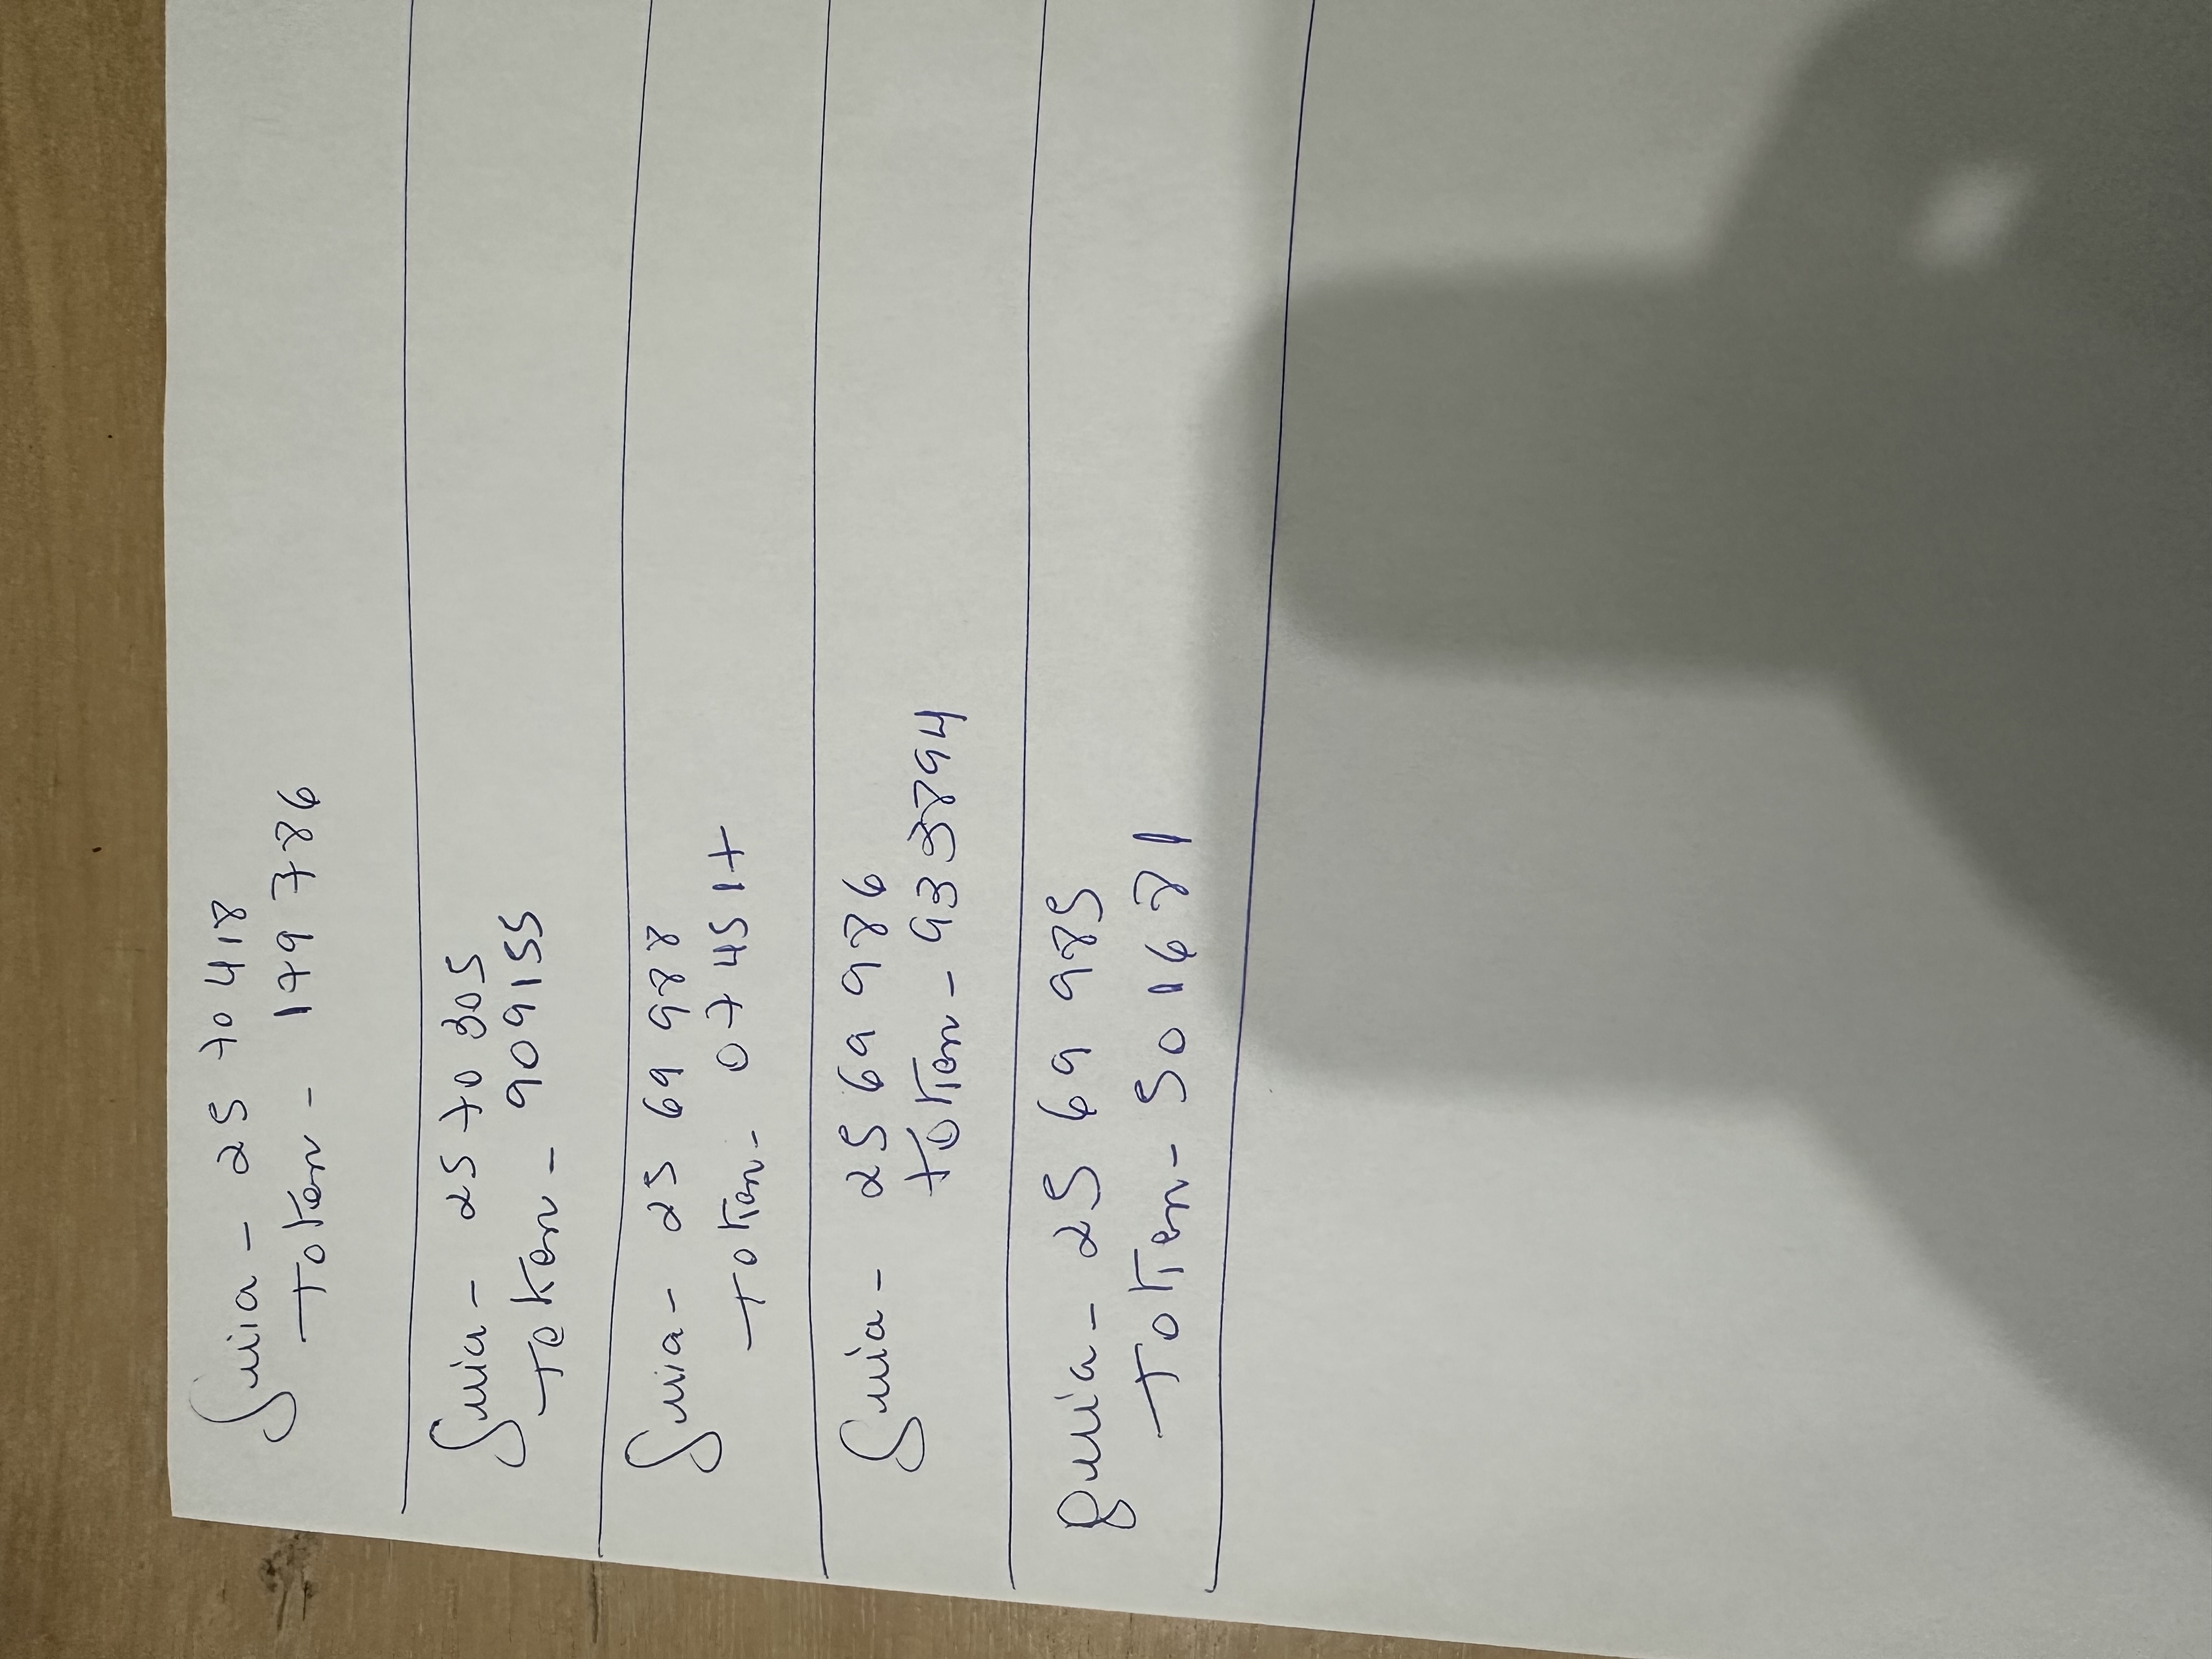 Guia - 25 70 418
Token - 179 786
Guia - 25 70 305
Token - 909155
Guia - 25 69 988
Token - 074517
Guia - 25 69 986
Token - 933894
Guia - 25 69 985
Token - 501681